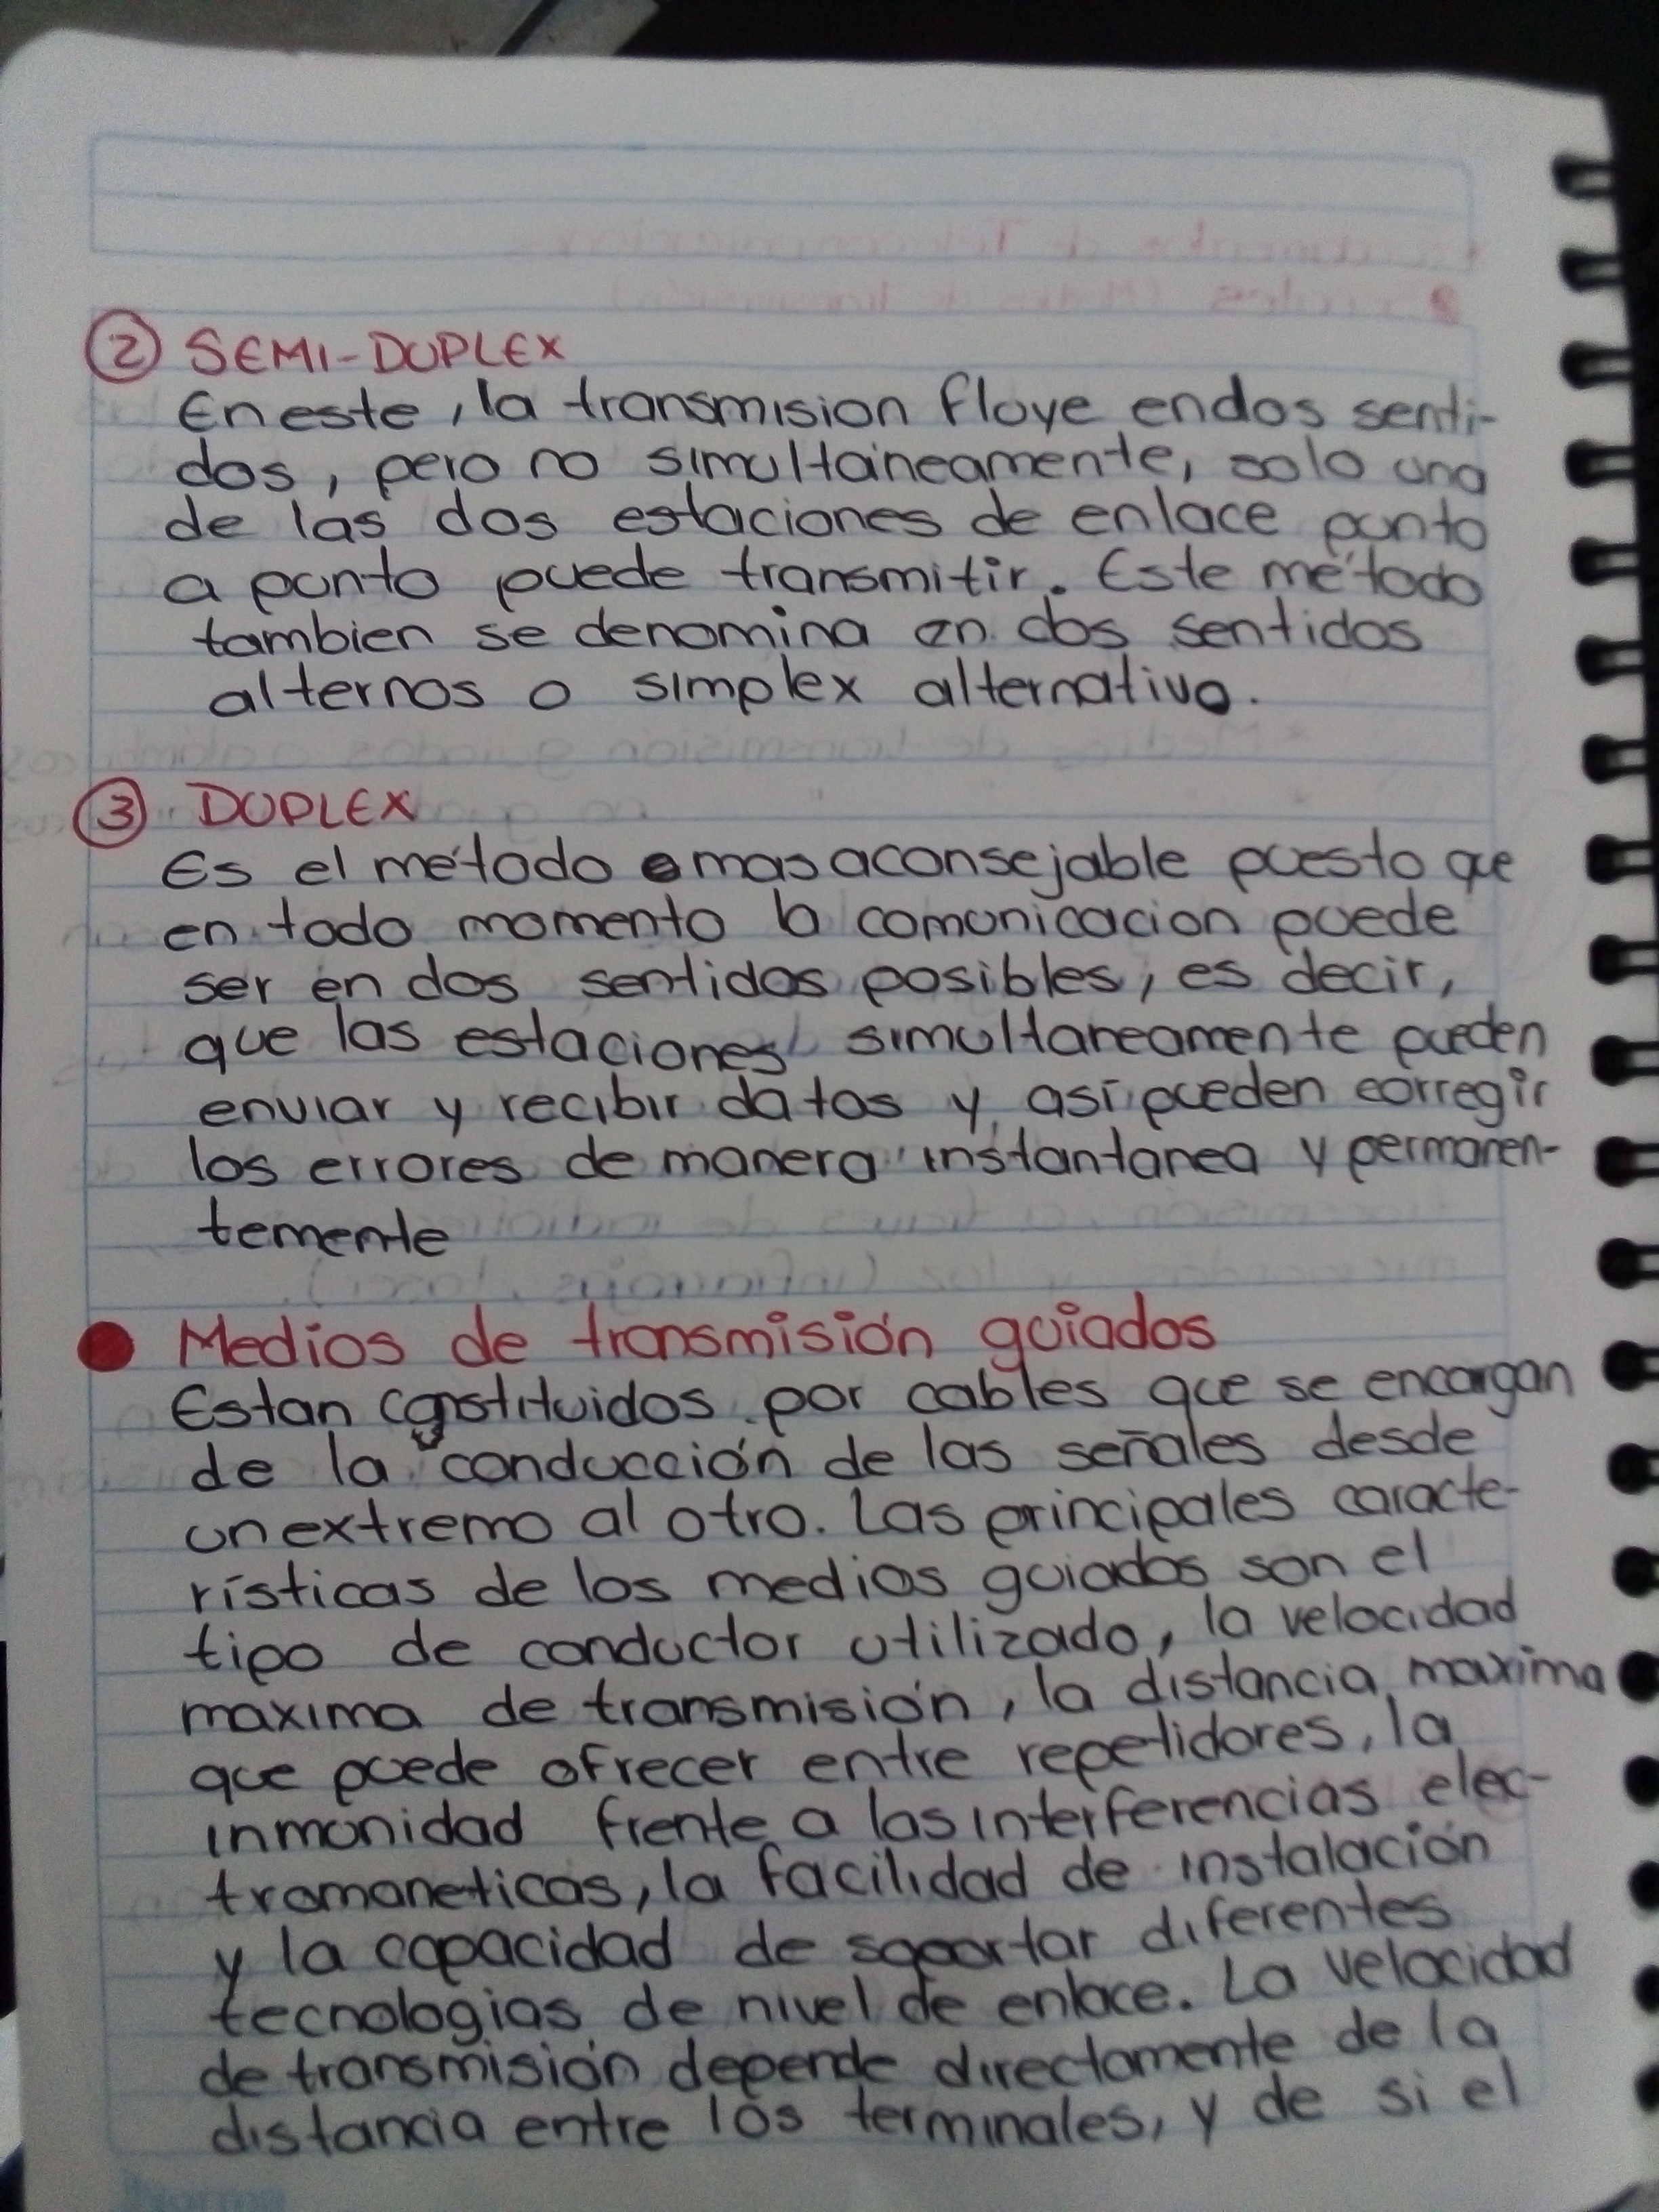 ② SEMI-DUPLEX
En este, la transmision fluye en dos senti-
dos, pero no simultaineamente, solo una
de las dos estaciones de enlace punto
a punto puede transmitir. Este método
tambien se denomina en dos sentidos
alternos o simplex alternativo.
③ DUPLEX
Es el método mas aconsejable puesto que
en todo momento la comunicacion puede
ser en dos sentidos posibles, es decir,
que las estaciones simultaneamente pueden
enviar y recibir datos y así pueden corregir
los errores de manera instantanea y permanen-
temente
● Medios de transmisión guiados
Estan constituidos por cables que se encargan
de la conducción de las señales desde
un extremo al otro. Las principales caracte-
rísticas de los medios guiados son el
tipo de conductor utilizado, la velocidad
maxima de transmisión, la distancia maxima
que puede ofrecer entre repetidores, la
inmunidad frente a las interferencias elec-
tromaneticas, la facilidad de instalación
y la capacidad de soportar diferentes
tecnologias de nivel de enlace. La velocidad
de transmisión depende directamente de la
distancia entre los terminales, y de si el